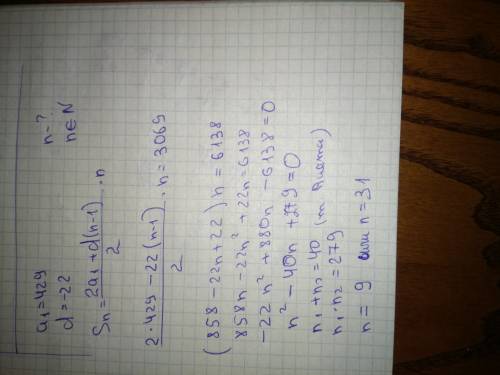 a₁=429 n-?
d=-22 n∈N
Sₙ = (2a₁+d(n-1))/2 · n
(2·429-22(n-1))/2 · n = 3069
(858-22n+22)n=6138
858n-22n²+22n=6138
-22n²+880n-6138=0
n²-40n+279=0
n₁+n₂=40 (т Виета)
n₁·n₂=279
n=9 или n=31